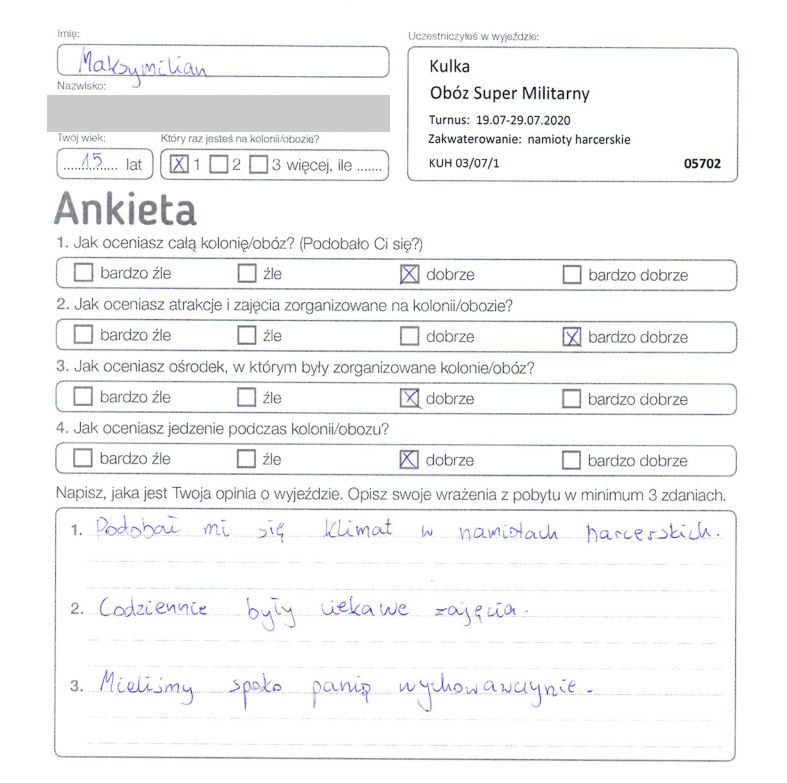 Imię:
Maksymilian
Nazwisko:
Twój wiek:
15 lat
Który raz jesteś na kolonii/obozie?
1 2 3 więcej, ile .......
Uczestniczyłeś w wyjeździe:
Kulka
Obóz Super Militarny
Turnus: 19.07-29.07.2020
Zakwaterowanie: namioty harcerskie
KUH 03/07/1 05702
Ankieta
1. Jak oceniasz całą kolonię/obóz? (Podobało Ci się?)
bardzo źle źle dobrze bardzo dobrze
2. Jak oceniasz atrakcje i zajęcia zorganizowane na kolonii/obozie?
bardzo źle źle dobrze bardzo dobrze
3. Jak oceniasz ośrodek, w którym były zorganizowane kolonie/obóz?
bardzo źle źle dobrze bardzo dobrze
4. Jak oceniasz jedzenie podczas kolonii/obozu?
bardzo źle źle dobrze bardzo dobrze
Napisz, jaka jest Twoja opinia o wyjeździe. Opisz swoje wrażenia z pobytu w minimum 3 zdaniach.
1. Podobał mi się klimat w namiotach harcerskich.
2. Codziennie były ciekawe zajęcia.
3. Mieliśmy spoko panią wychowawczynie.